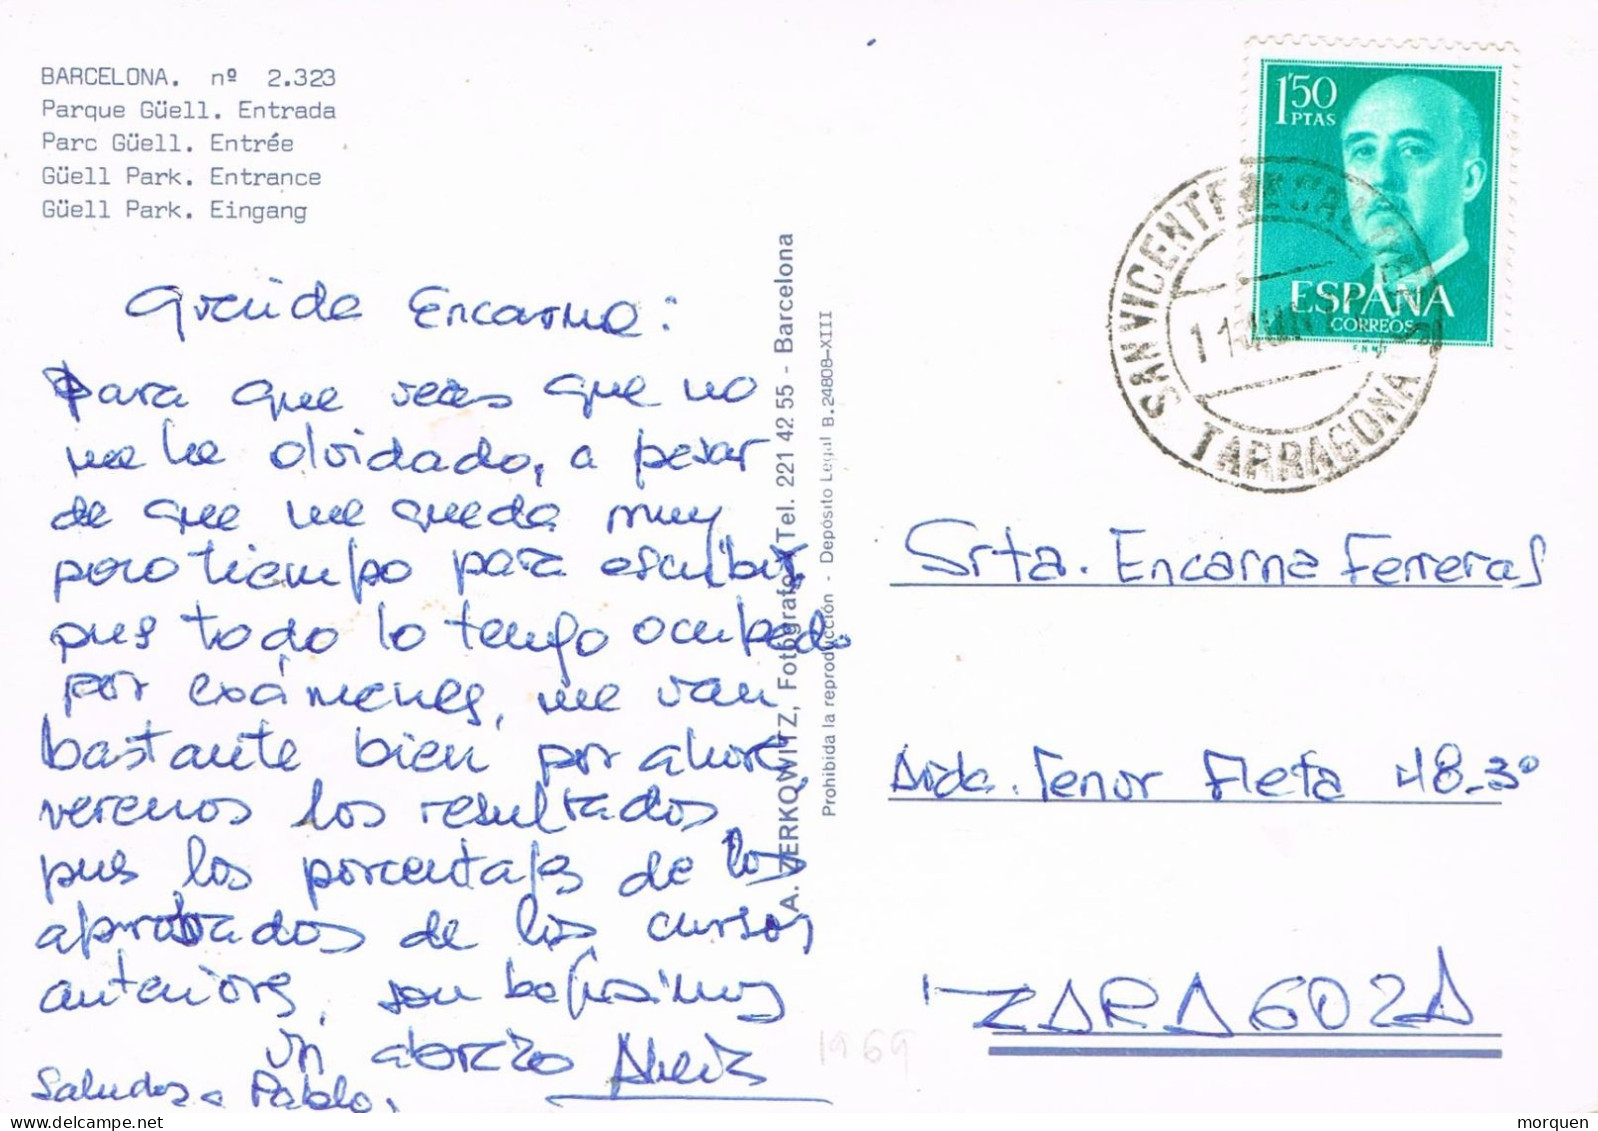 BARCELONA. nº 2.323
Parque Güell. Entrada
Parc Güell. Entrée
Güell Park. Entrance
Güell Park. Eingang
Querida Encarna:
Para que veas que no
me he olvidado, a pesar
de que me queda muy
poco tiempo para escribir,
pues todo lo tengo ocupado
por exámenes, me van
bastante bien por ahora,
veremos los resultados,
pues los porcentajes de los
aprobados de los cursos
anteriores, son bajísimos
Un abrazo
Saludos a Pablo.
A. ZERKOWITZ, Fotógrafo. Tel. 221 42 55 - Barcelona
Prohibida la reproducción - Depósito Legal B. 24808-XIII
1'50
PTAS
ESPAÑA
CORREOS
F.N.M.T
SAN VICENTE DE CALDERS
TARRAGONA
Srta. Encarna Ferreras
Avda. Tenor Fleta 48-3º
ZARAGOZA
1969
morquen